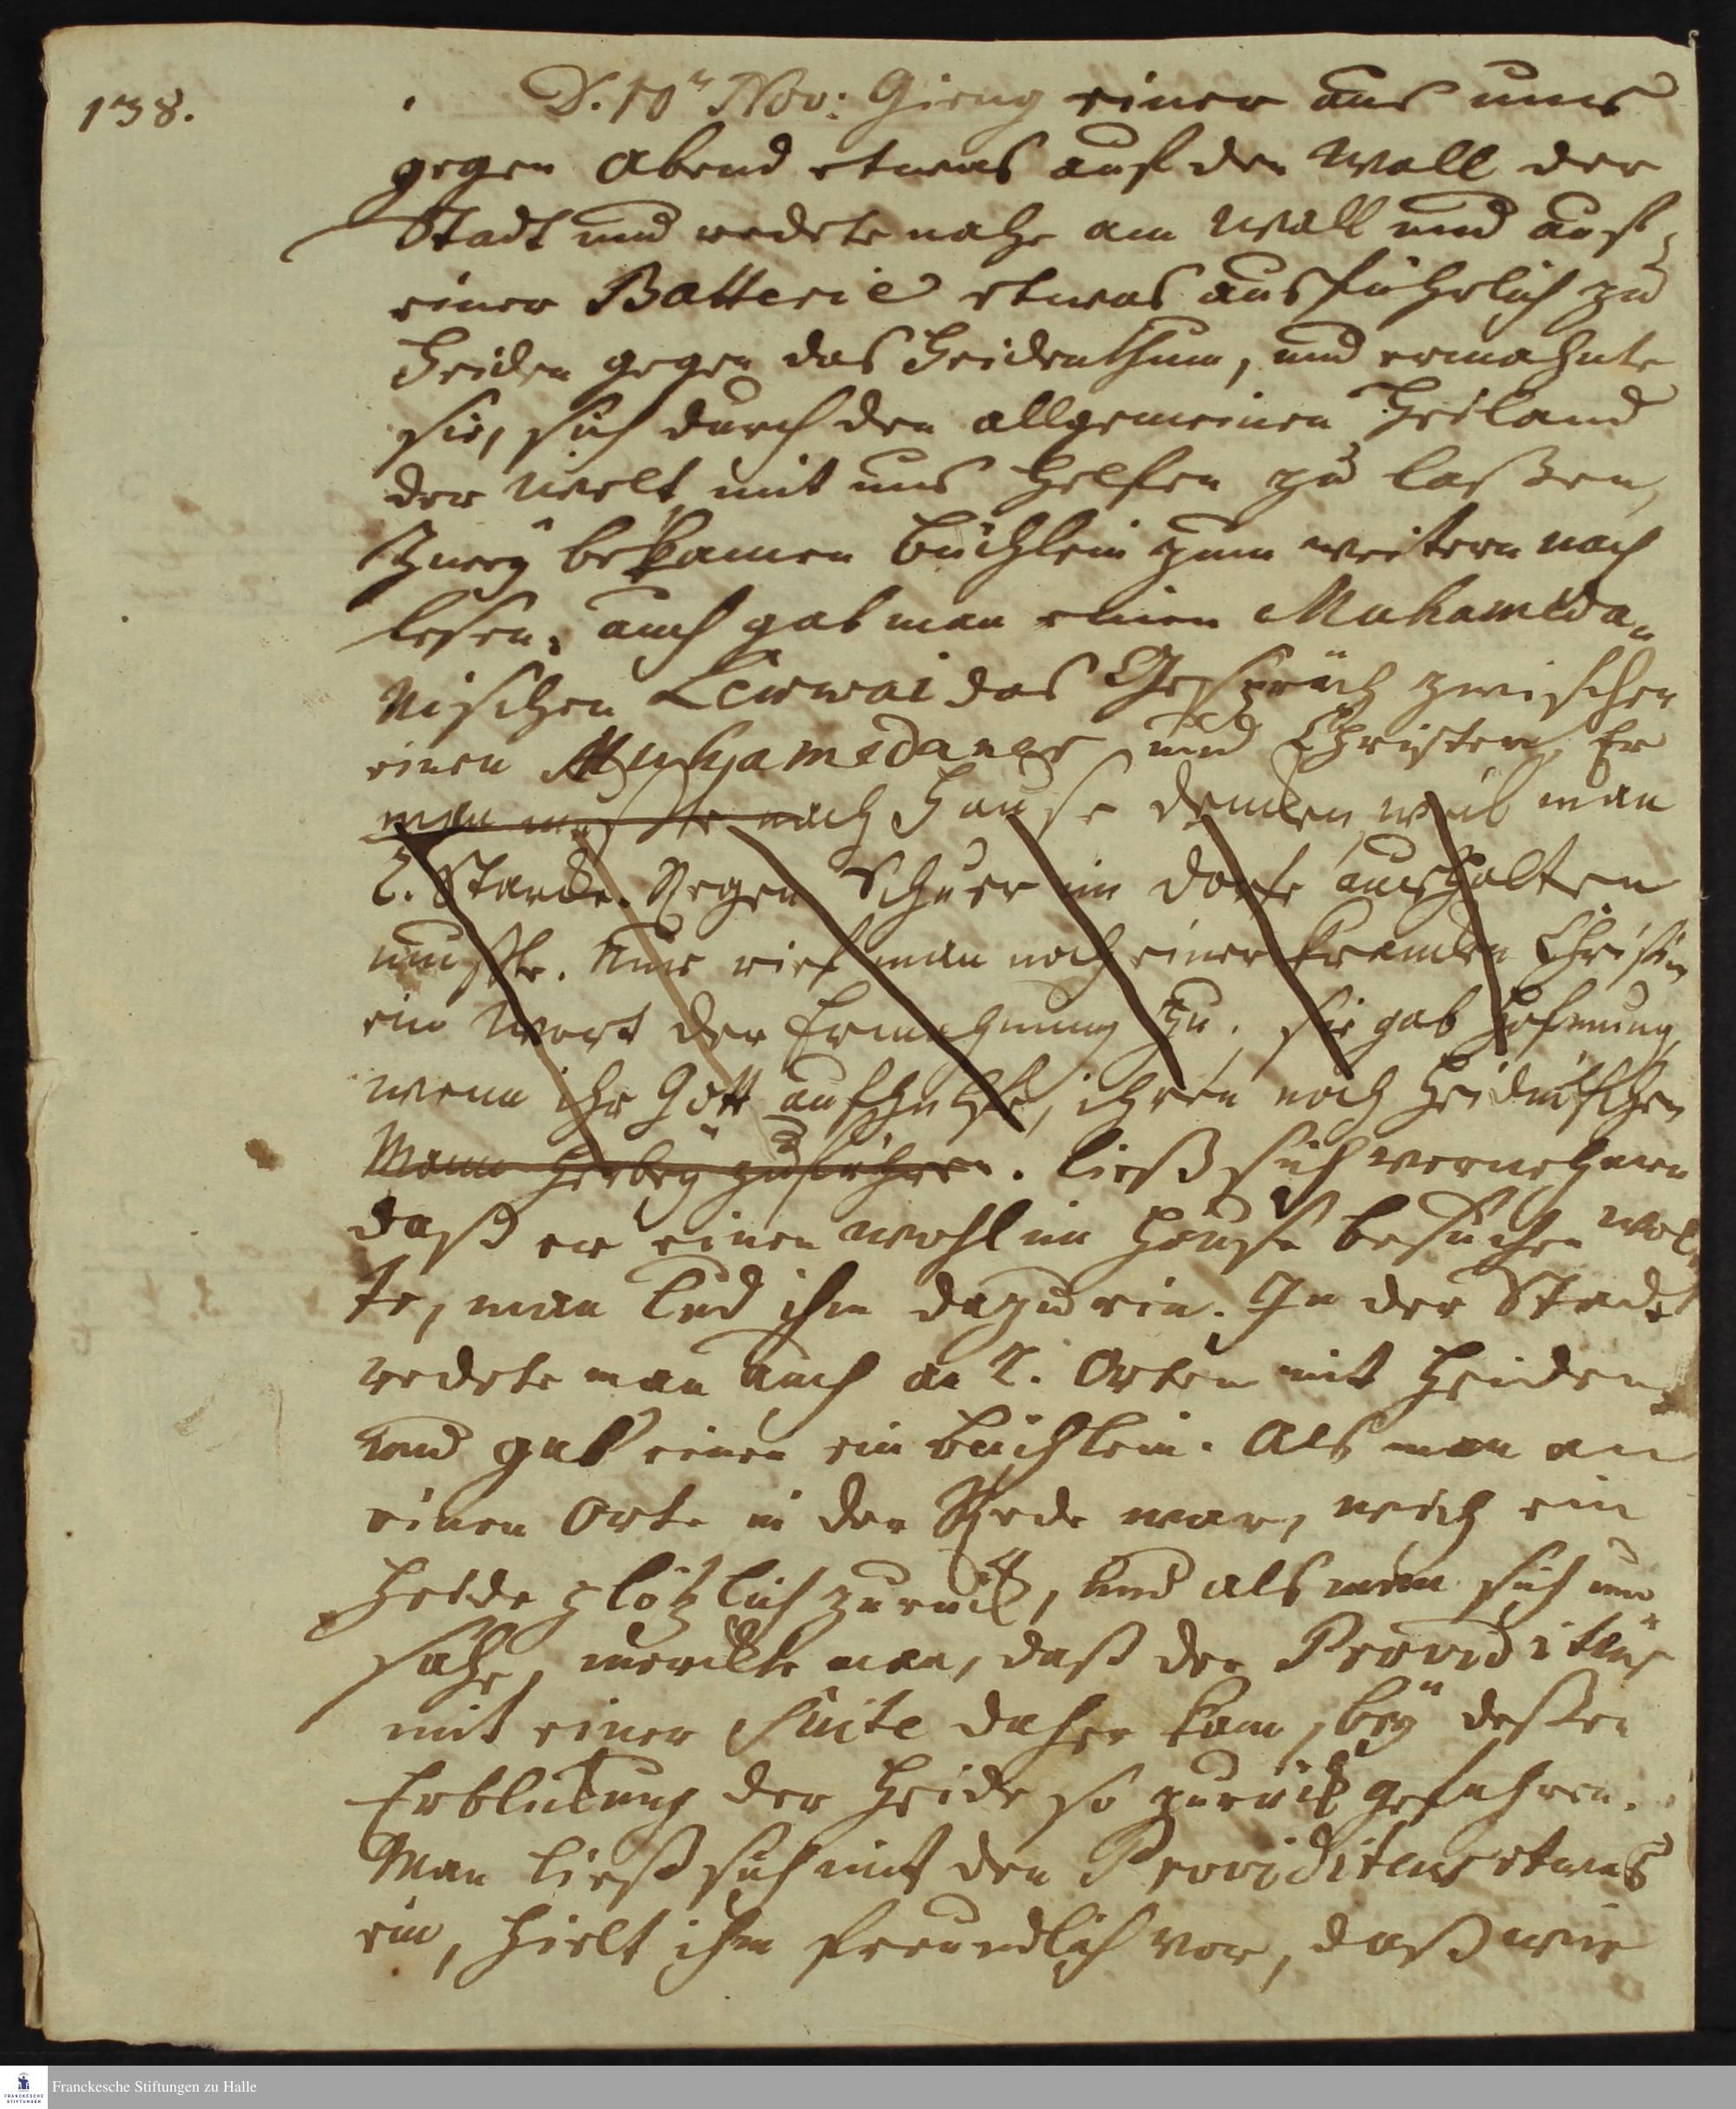 138.
D. 10n Nov: Gieng einer aus uns
gegen Abend etwas auf den Wall der
Stadt und redete nahe am Wall und auf
einer Batterie etwas ausführlich zu
Heiden gegen das Heidenthum, und ermahnte
sie, sich durch den allgemeinen Heiland
der Welt mit uns helfen zu laßen,
Zwey bekamen Büchlein zum weitern nach
lesen, auch gab man einen Muhameda-
nischen Lewwai das Gespräch zwischen
einen Muhamedaner und Christen, Er
man muste nach Hause dencken, weil man
2. starcke Regen Schuer im Dorfe aushalten
muste. Nur rief man noch einer francken Christin
ein Wort der Ermahnung zu. sie gab Hofnung,
wenn ihr Gott aufhülfe, ihren noch heidnischen
Mann herbey zuführen. ließ sich vernehmen
daß er einen wohl im Hause besuchen wol-
te, man lud ihn dazu ein. In der Stadt
redete man auch an 2. Orten mit Heiden,
und gab einen ein Büchlein. Als man an
einen Orte in der Rede war, wich ein
Heide plötzlich zurück, und als man sich um-
sahe, merckte man, daß der Providiteur
mit einer Suite daher kam, bey deßen
Erblickung der Heide so zurück gefahren.
Man ließ sich mit den Providiteur etwas
ein, hielt ihm freundlich vor, daß wir
Franckesche Stiftungen zu Halle
FRANCKESCHE
STIFTUNGEN